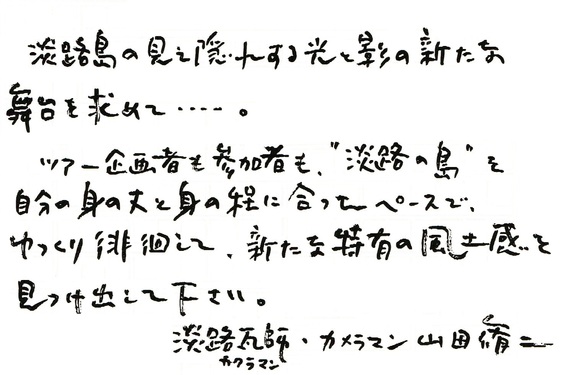 淡路島の見え隠れする光と影の新たな
舞台を求めて‥‥‥。
ツアー企画者も参加者も、“淡路の島”を
自分の身の丈と身の程に合ったペースで、
ゆっくり徘徊して、新たな特有の風土感を
見つけ出して下さい。
淡路瓦師・カメラマン 山田脩二
カワラマン